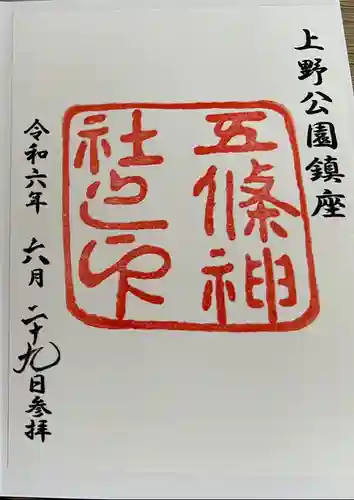 上野公園鎮座
五條神
社之印
令和六年 六月 二十九日参拝